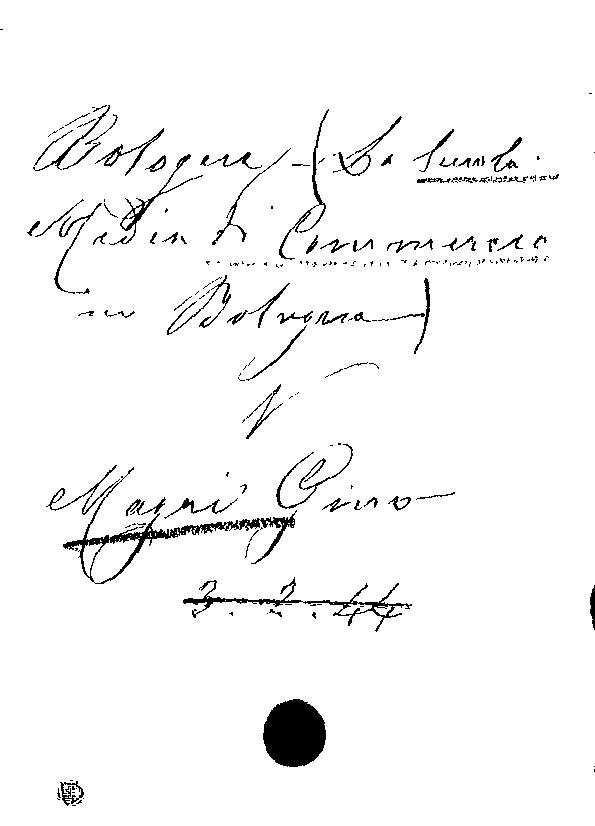 Bologna - (La Scuola
Media di Commercio
in Bologna)
V
Magri Ciro
3.2.44